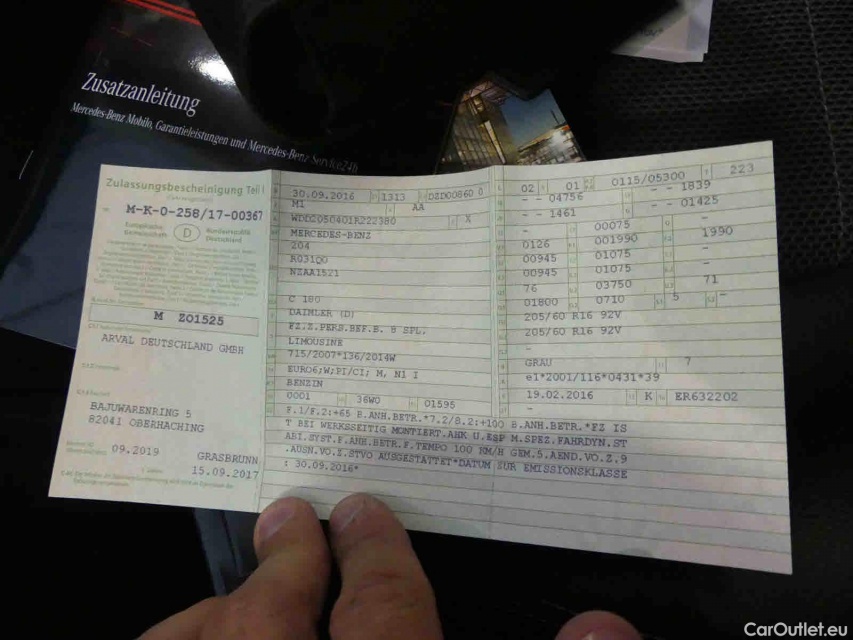 Zusatzanleitung
Mercedes-Benz Mobilo, Garantieleistungen und Mercedes-Benz Service24h
Zulassungsbescheinigung Teil I
M-K-0-258/17-00367
Europäische Gemeinschaft
D
Bundesrepublik Deutschland
M Z01525
ARVAL DEUTSCHLAND GMBH
BAJUWARENRING 5
82041 OBERHACHING
09.2019
GRASBRUNN
15.09.2017
30.09.2016 1313 DZD00860 0
M1 AA
WDD2050401R222380 X
MERCEDES-BENZ
204
R031Q0
NZAA1521
C 180
DAIMLER (D)
FZ.Z.PERS.BEF.B. 8 SPL.
LIMOUSINE
715/2007*136/2014W
EURO6;W;PI/CI; M, N1 I
BENZIN
0001 36W0 01595
02 01 0115/05300 223
- - 04756 - - 1839
- - 1461 - - 01425
- 00075 -
0126 001990 1990
00945 01075 -
00945 01075 -
76 03750 71
01800 0710 5 -
205/60 R16 92V
205/60 R16 92V
-
GRAU 7
e1*2001/116*0431*39
19.02.2016 K ER632202
-
F.1/F.2:+65 B.ANH.BETR.*7.2/8.2:+100 B.ANH.BETR.*FZ IS
T BEI WERKSSEITIG MONTIERT.AHK U.ESP M.SPEZ.FAHRDYN.ST
ABI.SYST.F.ANH.BETR.F.TEMPO 100 KM/H GEM.5.AEND.VO.Z.9
.AUSN.VO.Z.STVO AUSGESTATTET*DATUM ZUR EMISSIONSKLASSE
: 30.09.2016*
CarOutlet.eu